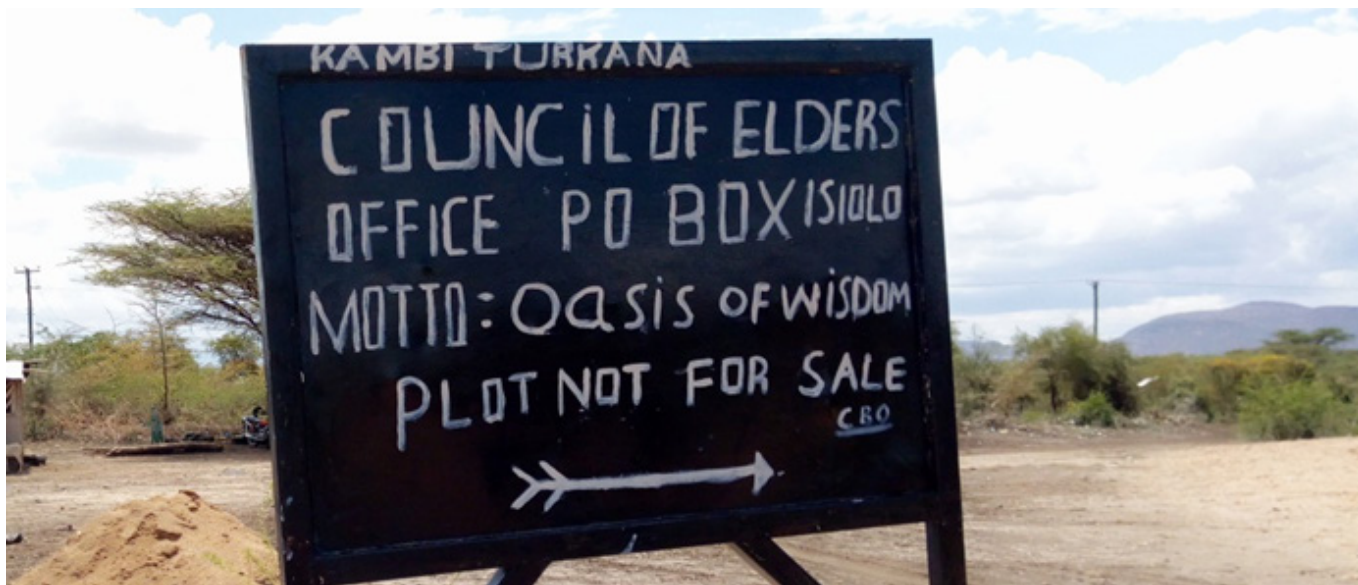 KAMBI TURKANA
COUNCiL OF ELDERS
OFFICE PO BOX ISIOLO
MOTTO: OaSiS OF WiSDOM
PLOT NOT FOR SALE
CBO